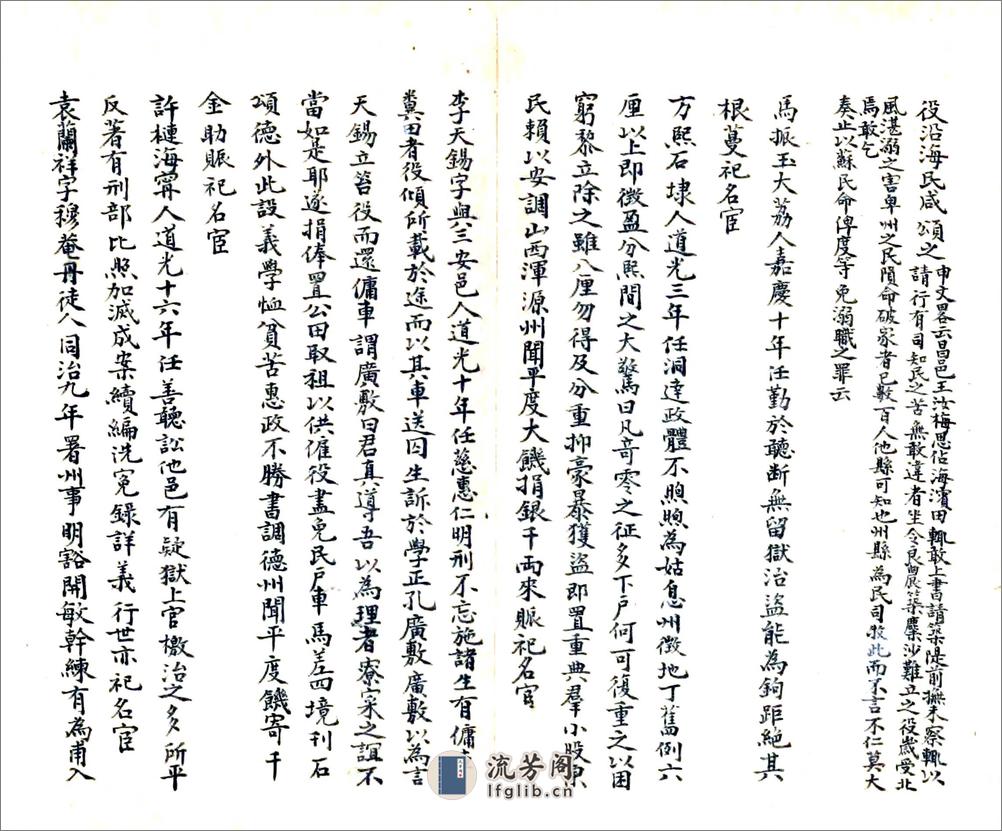 役沿海民咸頌之申文畧云昌邑王汝梅思佔海濱田輒敢上書請築隄前撫未察輒以
請行有司知民之苦無敢違者坐令良農築麋沙難立之役歲受北
風湛溺之害卑州之民隕命破家者已數百人他縣可知也州縣為民司牧此而不言不仁莫大
焉敢乞
奏止以蘇民命俾度等免溺職之罪云
馬振玉大荔人嘉慶十年任勤於聽斷無留獄治盜能為鉤距絕其
根蔓祀名宦
方熙石埭人道光三年任洞達政體不煦煦為姑息州徵地丁舊例六
厘以上即徵盈分熙聞之大驚曰凡奇零之征多下戶何可復重之以困
窮黎立除之雖八厘勿得及分重抑豪暴獲盜即置重典羣小股栗
民賴以安調山西渾源州聞平度大饑捐銀千兩來賑祀名宦
李天錫字與三安邑人道光十年任慈惠仁明刑不忘施諸生有傭
糞田者役傾所載於途而以其車送囚生訴於學正孔廣敷廣敷以為言
天錫立笞役而還傭車謂廣敷曰君真導吾以為理者寮寀之誼不
當如是耶遂捐俸置公田取租以供僱役盡免民戶車馬差四境刊石
頌德外此設義學恤貧苦惠政不勝書調德州聞平度饑寄千
金助賑祀名宦
許槤海甯人道光十六年任善聽訟他邑有疑獄上官檄治之多所平
反著有刑部比照加減成案續編洗冤錄詳義行世亦祀名宦
袁蘭祥字穆菴丹徒人同治九年署州事明豁開敏幹練有為甫入
流芳阁
lfglib.cn